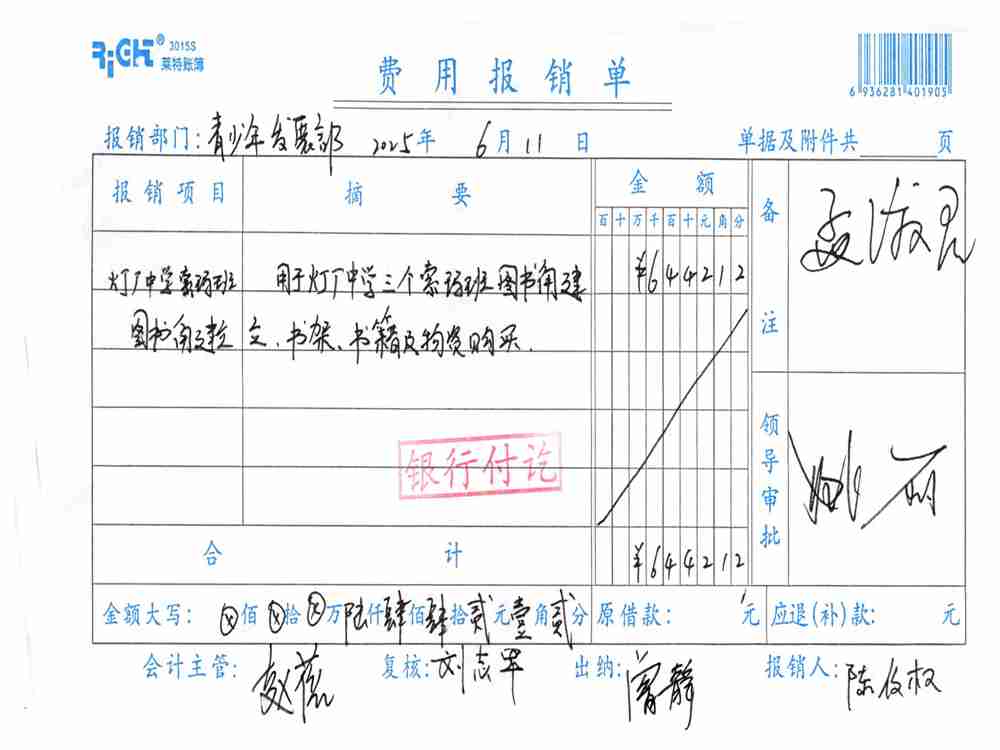 RiCHT® 3015S
莱特账簿
费用报销单
6 936281 401905
报销部门：青少年发展部 2025年 6月 11 日 单据及附件共 页
报销项目 摘要 金额 备注
百 十 万 千 百 十 元 角 分
灯厂中学索玛班 用于灯厂中学三个索玛班图书角建 ¥644212
图书角建立 立、书架、书籍及物资购买.
领导审批
银行付讫
合计 ¥644212
金额大写： ⊗佰 ⊗拾 ⊗万 陆仟 肆佰 肆拾 贰元 壹角 贰分 原借款： 元 应退(补)款： 元
会计主管：赵蕊 复核：刘志军 出纳：曾静 报销人：陈俊权